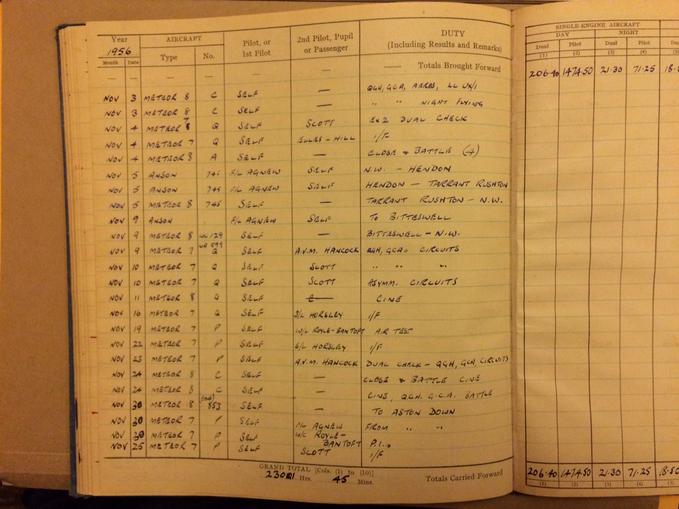 Year 1956 AIRCRAFT Pilot, or 1st Pilot 2nd Pilot, Pupil or Passenger DUTY (Including Results and Remarks) SINGLE-ENGINE AIRCRAFT
DAY NIGHT
Month Date Type No. Dual Pilot Dual Pilot
(1) (2) (3) (4)
— — — — — Totals Brought Forward 206.40 1474.50 21.30 71.25
NOV 3 METEOR 8 C SELF — QGH, GCA,
NOV 3 METEOR 8 C SELF — " " NIGHT FLYING
NOV 4 METEOR 7 Q SELF SCOTT DUAL CHECK
NOV 4 METEOR 7 Q SELF ELLES-HILL I/F
NOV 4 METEOR 8 A SELF — CLOSE & BATTLE (4)
NOV 5 ANSON F/L AGNEW SELF N.W. - HENDON
NOV 5 ANSON F/L AGNEW SELF HENDON - TARRANT RUSHTON
NOV 5 METEOR 8 745 SELF — TARRANT RUSHTON - N.W.
NOV 9 ANSON F/L AGNEW SELF TO BITTESWELL
NOV 9 METEOR 8 SELF — BITTESWELL - N.W.
NOV 9 METEOR 7 Q SELF A.V.M. HANCOCK QGH, GCA, CIRCUITS
NOV 10 METEOR 7 Q SELF SCOTT " " "
NOV 10 METEOR 7 Q SELF SCOTT ASYMM. CIRCUITS
NOV 11 METEOR 8 Q SELF — CINE
NOV 16 METEOR 7 Q SELF S/L HORSLEY I/F
NOV 19 METEOR 7 P SELF W/C ROYLE-BANTOFT AIR TEST
NOV 22 METEOR 7 P SELF S/L HORSLEY I/F
NOV 23 METEOR 7 P SELF A.V.M. HANCOCK DUAL CHECK - QGH, GCA CIRCUITS
NOV 24 METEOR 8 C SELF — CLOSE & BATTLE CINE
NOV 24 METEOR 8 C SELF — CINE, QGH, G.C.A. BATTLE
NOV 30 METEOR 8 853 SELF — TO ASTON DOWN
NOV 30 METEOR 7 P SELF F/L AGNEW FROM " "
NOV 30 METEOR 7 P SELF W/C ROYLE-BANTOFT P.I.
NOV 25 METEOR 7 P SELF SCOTT I/F
GRAND TOTAL [Cols. (1) to (10)]
Hrs. 45 Mins. Totals Carried Forward 206.40 1474.50 21.30 71.25
(1) (2) (3) (4)